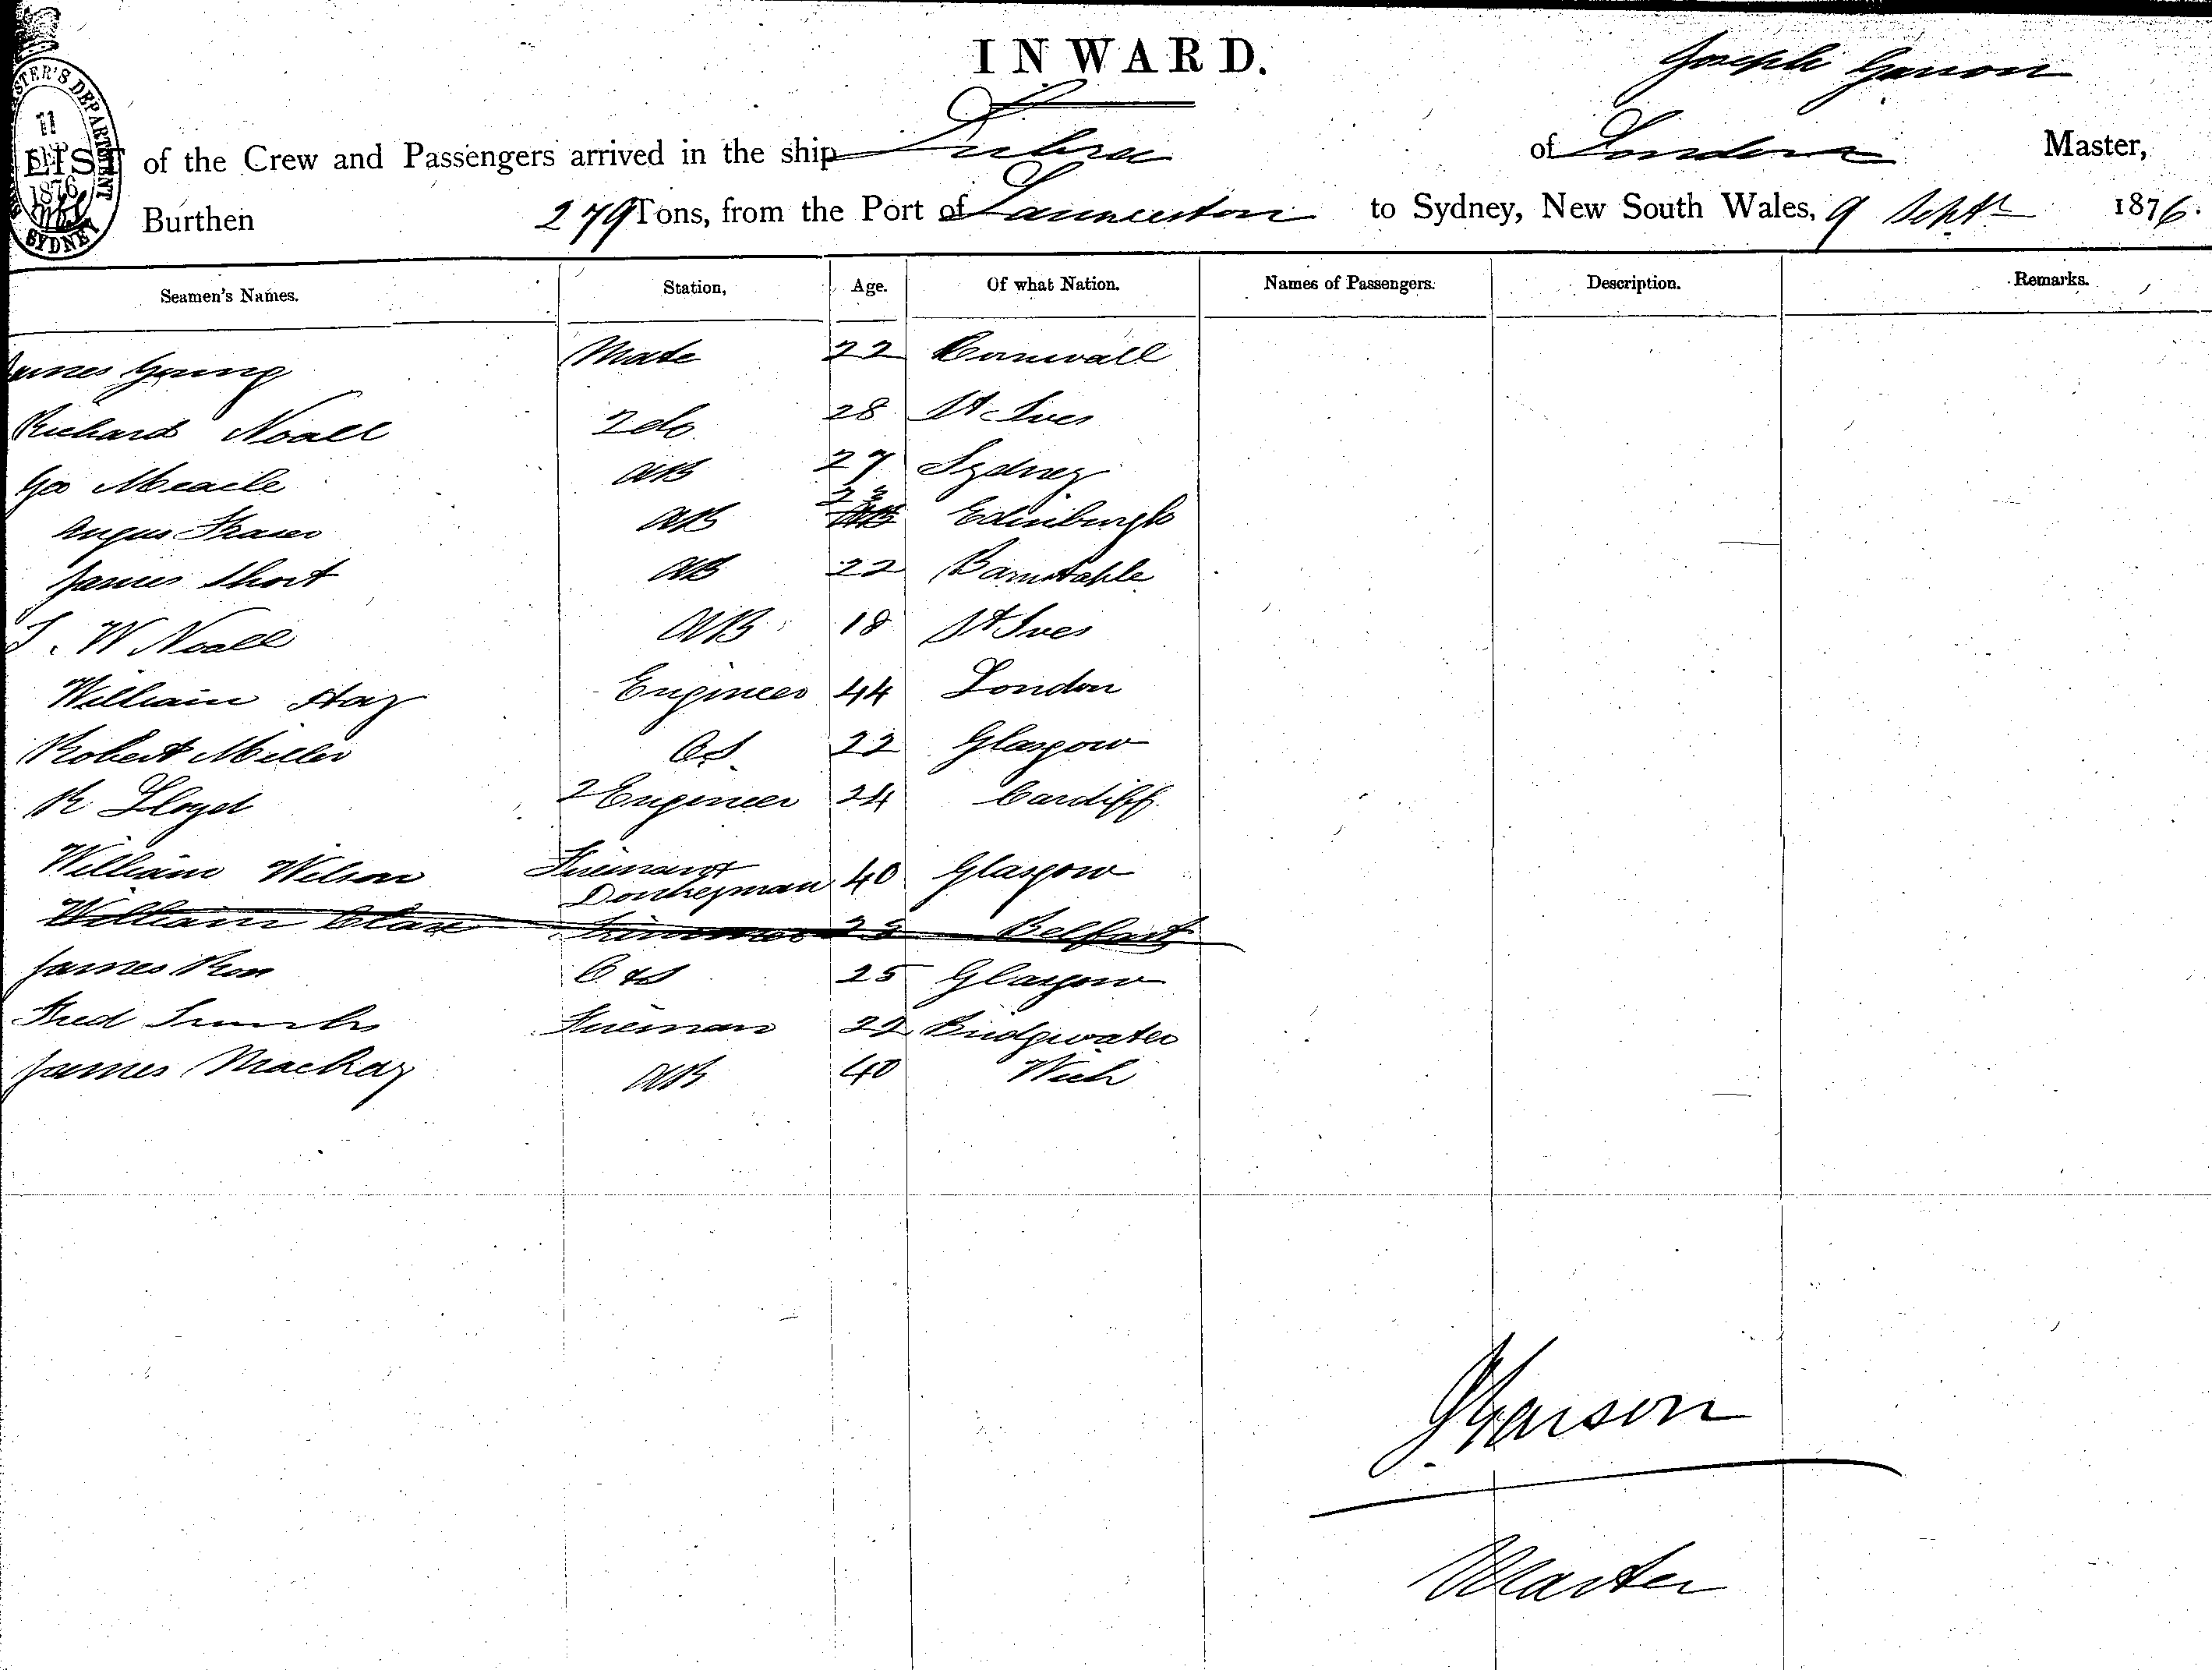 INWARD.
Joseph Garson
LIST of the Crew and Passengers arrived in the ship Lubra of London Master,
Burthen 279 Tons, from the Port of Launceston to Sydney, New South Wales, 9 Septr 1876.
11 SEP 1876
SYDNEY
Seamen's Names. Station, Age. Of what Nation. Names of Passengers. Description. Remarks.
James Young Mate 22 Cornwall
Richard Noall 2 do 28 St Ives
Geo AB 27 Sydney
Angus Fraser AB 23 Edinburgh
James Short AB 22 Barnstaple
W Noall AB 18 St Ives
William Hay Engineer 44 London
Robert Miller 22 Glasgow
R Lloyd 2 Engineer 24 Cardiff
William Wilson Fireman & Donkeyman 40 Glasgow
William Clark Trimmer 23 Belfast
James Ross C & S 25 Glasgow
Fred Fireman 22 Bridgwater
James Mackay AB 40 Wick
J Garson
Master